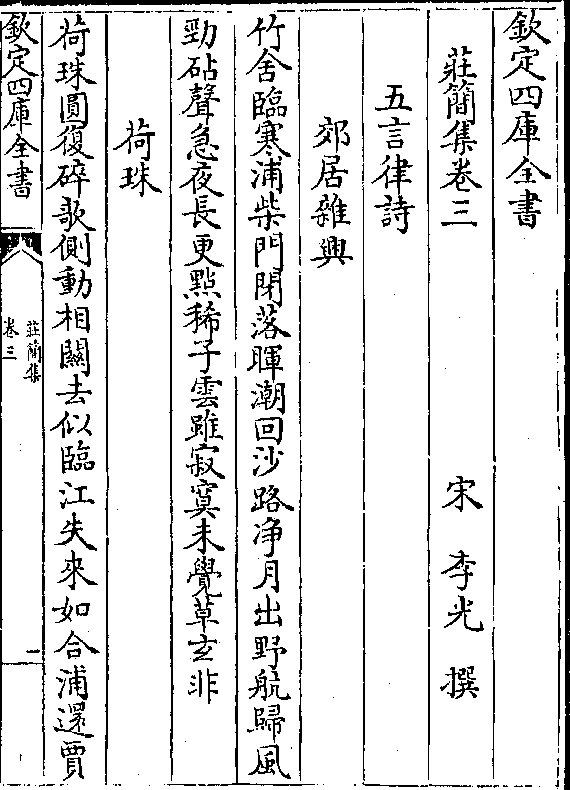 欽定四庫全書
莊簡集卷三
宋 李光 撰
五言律詩
郊居雜興
竹舍臨寒浦柴門閉落暉潮回沙路净月出野航歸風
勁砧聲急夜長更點稀子雲雖寂寞未覺草玄非
荷珠
荷珠圓復碎欹側動相關去似臨江失來如合浦還賈
欽定四庫全書
莊簡集
卷三
一